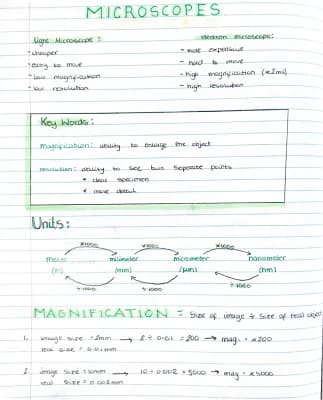 MICROSCOPES
Light Microscope :
- cheaper
- easy to move
- low magnification
- low resolution
electron microscope:
- more expensive
- hard to move
- high magnification (x2mil)
- high resolution
Key Words:
magnification: ability to enlarge the object
resolution: ability to see two seperate points
* clear specimen
* more detail
Units:
x1000 x1000 x1000
meter milimeter micrometer nanometer
(m) (mm) (µm) (nm)
÷1000 ÷1000 ÷1000
MAGNIFICATION = size of image ÷ size of real object
1. image size = 2mm → 2 ÷ 0.01 = 200 → mag. = x200
real size = 0.01mm
2. image size = 10mm → 10 ÷ 0.002 = 5000 → mag = x5000
real size = 0.002mm